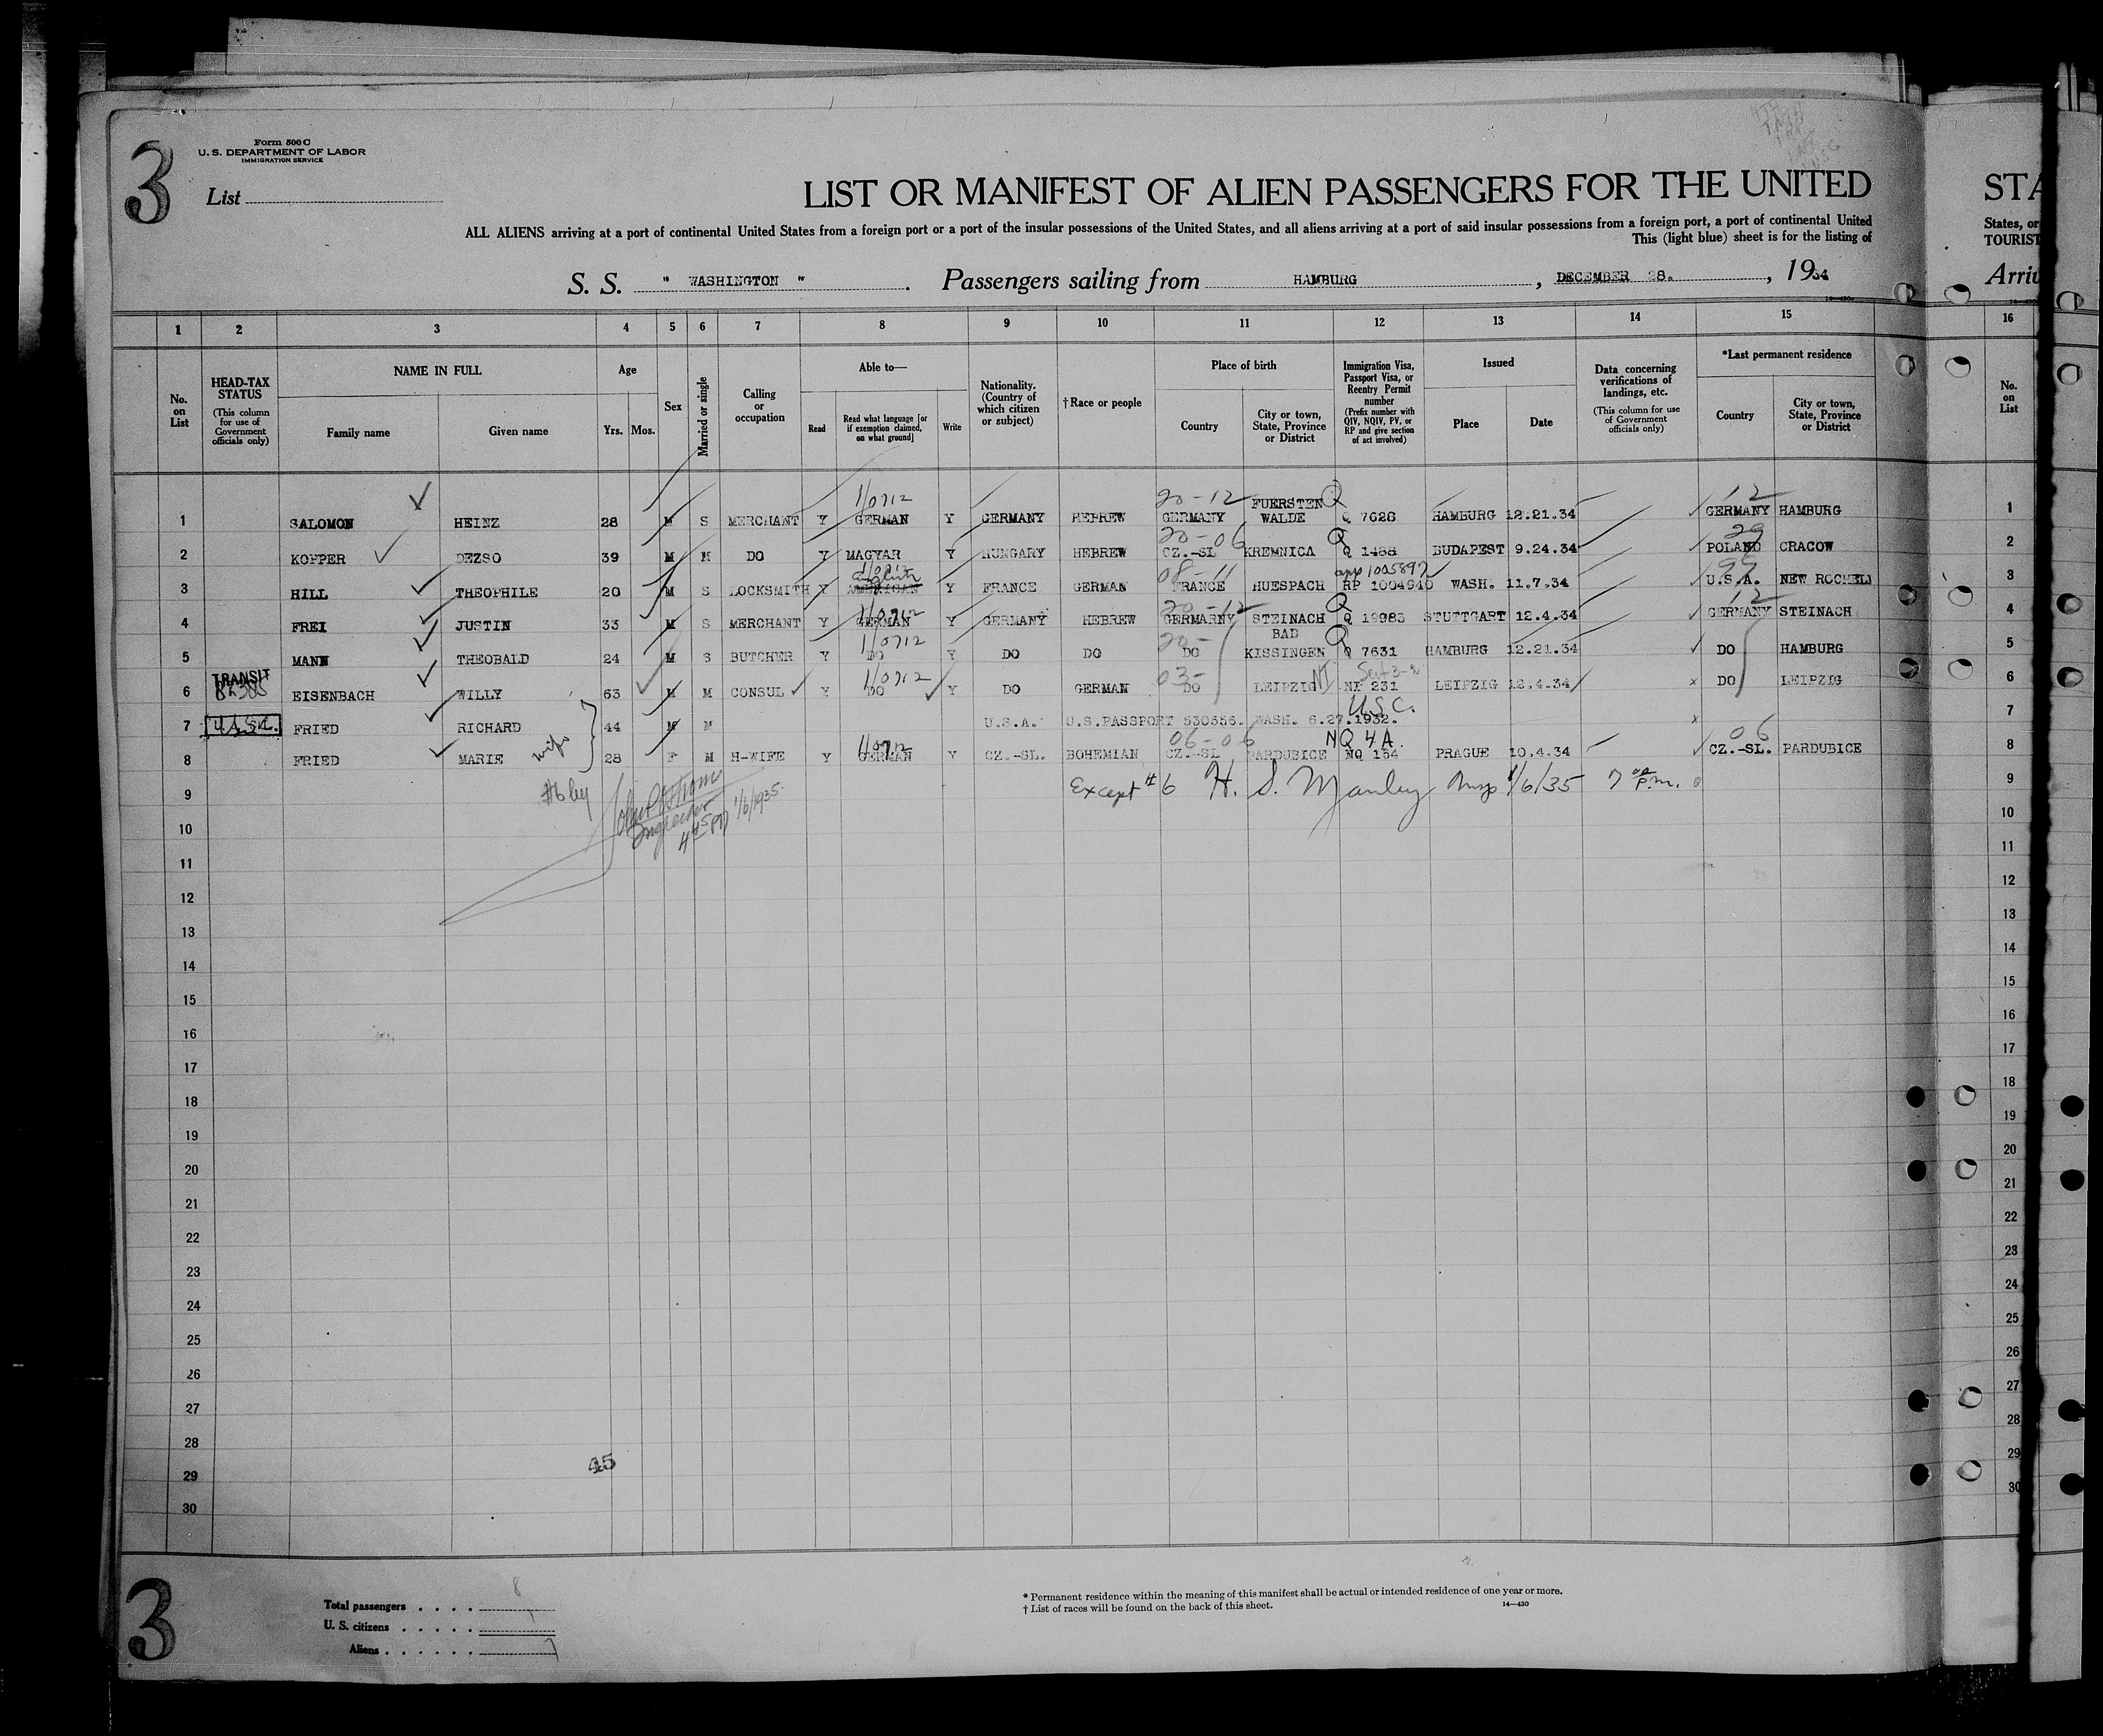 3
Form 500 C
U. S. DEPARTMENT OF LABOR
IMMIGRATION SERVICE
List
LIST OR MANIFEST OF ALIEN PASSENGERS FOR THE UNITED
STA
ALL ALIENS arriving at a port of continental United States from a foreign port or a port of the insular possessions of the United States, and all aliens arriving at a port of said insular possessions from a foreign port, a port of continental United
States, or
This (light blue) sheet is for the listing of
TOURIST
S. S. " WASHINGTON " . Passengers sailing from HAMBURG , DECEMBER 28. , 1934
Arriv
1 2 3 4 5 6 7 8 9 10 11 12 13 14 15 16
No. on List
HEAD-TAX STATUS (This column for use of Government officials only)
NAME IN FULL
Family name Given name
Age
Yrs. Mos.
Sex
Married or single
Calling or occupation
Able to—
Read
Read what language [or if exemption claimed, on what ground]
Write
Nationality. (Country of which citizen or subject)
†Race or people
Place of birth
Country
City or town, State, Province or District
Immigration Visa, Passport Visa, or Reentry Permit number (Prefix number with QIV, NQIV, PV, or RP and give section of act involved)
Issued
Place Date
Data concerning verifications of landings, etc. (This column for use of Government officials only)
*Last permanent residence
Country
City or town, State, Province or District
No. on List
20-12 12
1 SALOMON HEINZ 28 M S MERCHANT Y GERMAN Y GERMANY HEBREW GERMANY FUERSTEN WALDE Q 7628 HAMBURG 12.21.34 GERMANY HAMBURG 1
20-06 Q 29
2 KOPPER DEZSO 39 M M DO Y MAGYAR Y HUNGARY HEBREW CZ.-SL KREMNICA Q 1488 BUDAPEST 9.24.34 POLAND CRACOW 2
English 08-11 app 1005897 99
3 HILL THEOPHILE 20 M S LOCKSMITH Y AMERICAN Y FRANCE GERMAN FRANCE HUESPACH RP 1004940 WASH. 11.7.34 U.S.A. NEW ROCHELL 3
20-12 Q 12
4 FREI JUSTIN 33 M S MERCHANT Y GERMAN Y GERMANY HEBREW GERMARNY STEINACH Q 19983 STUTTGART 12.4.34 GERMANY STEINACH 4
20- Q
5 MANN THEOBALD 24 M S BUTCHER Y DO Y DO DO DO BAD KISSINGEN Q 7631 HAMBURG 12.21.34 DO HAMBURG 5
TRANSIT 03- NI Sect 3-2
6 EISENBACH WILLY 63 M M CONSUL Y DO Y DO GERMAN DO LEIPZIG NI 231 LEIPZIG 12.4.34 DO LEIPZIG 6
U.S.C.
7 U.S.C. FRIED RICHARD 44 M M U.S.A. U.S.PASSPORT 530656. WASH. 6.27.1932. 7
wife 06-06 NQ 4A. 06
8 FRIED MARIE 28 F M H-WIFE Y GERMAN Y CZ.-SL. BOHEMIAN CZ.-SL PARDUBICE NQ 154 PRAGUE 10.4.34 CZ.-SL. PARDUBICE 8
9 #6 by Except #6 H. S. Manley Insp 1/6/35 7 P.m. 9
Inspector 4 45 PM 1/6/1935.
10 10
11 11
12 12
13 13
14 14
15 15
16 16
17 17
18 18
19 19
20 20
21 21
22 22
23 23
24 24
25 25
26 26
27 27
28 28
45
29 29
30 30
3
Total passengers . . . . 8
U. S. citizens . . . . . 1
Aliens . . . . . . 7
* Permanent residence within the meaning of this manifest shall be actual or intended residence of one year or more.
† List of races will be found on the back of this sheet.
14—430